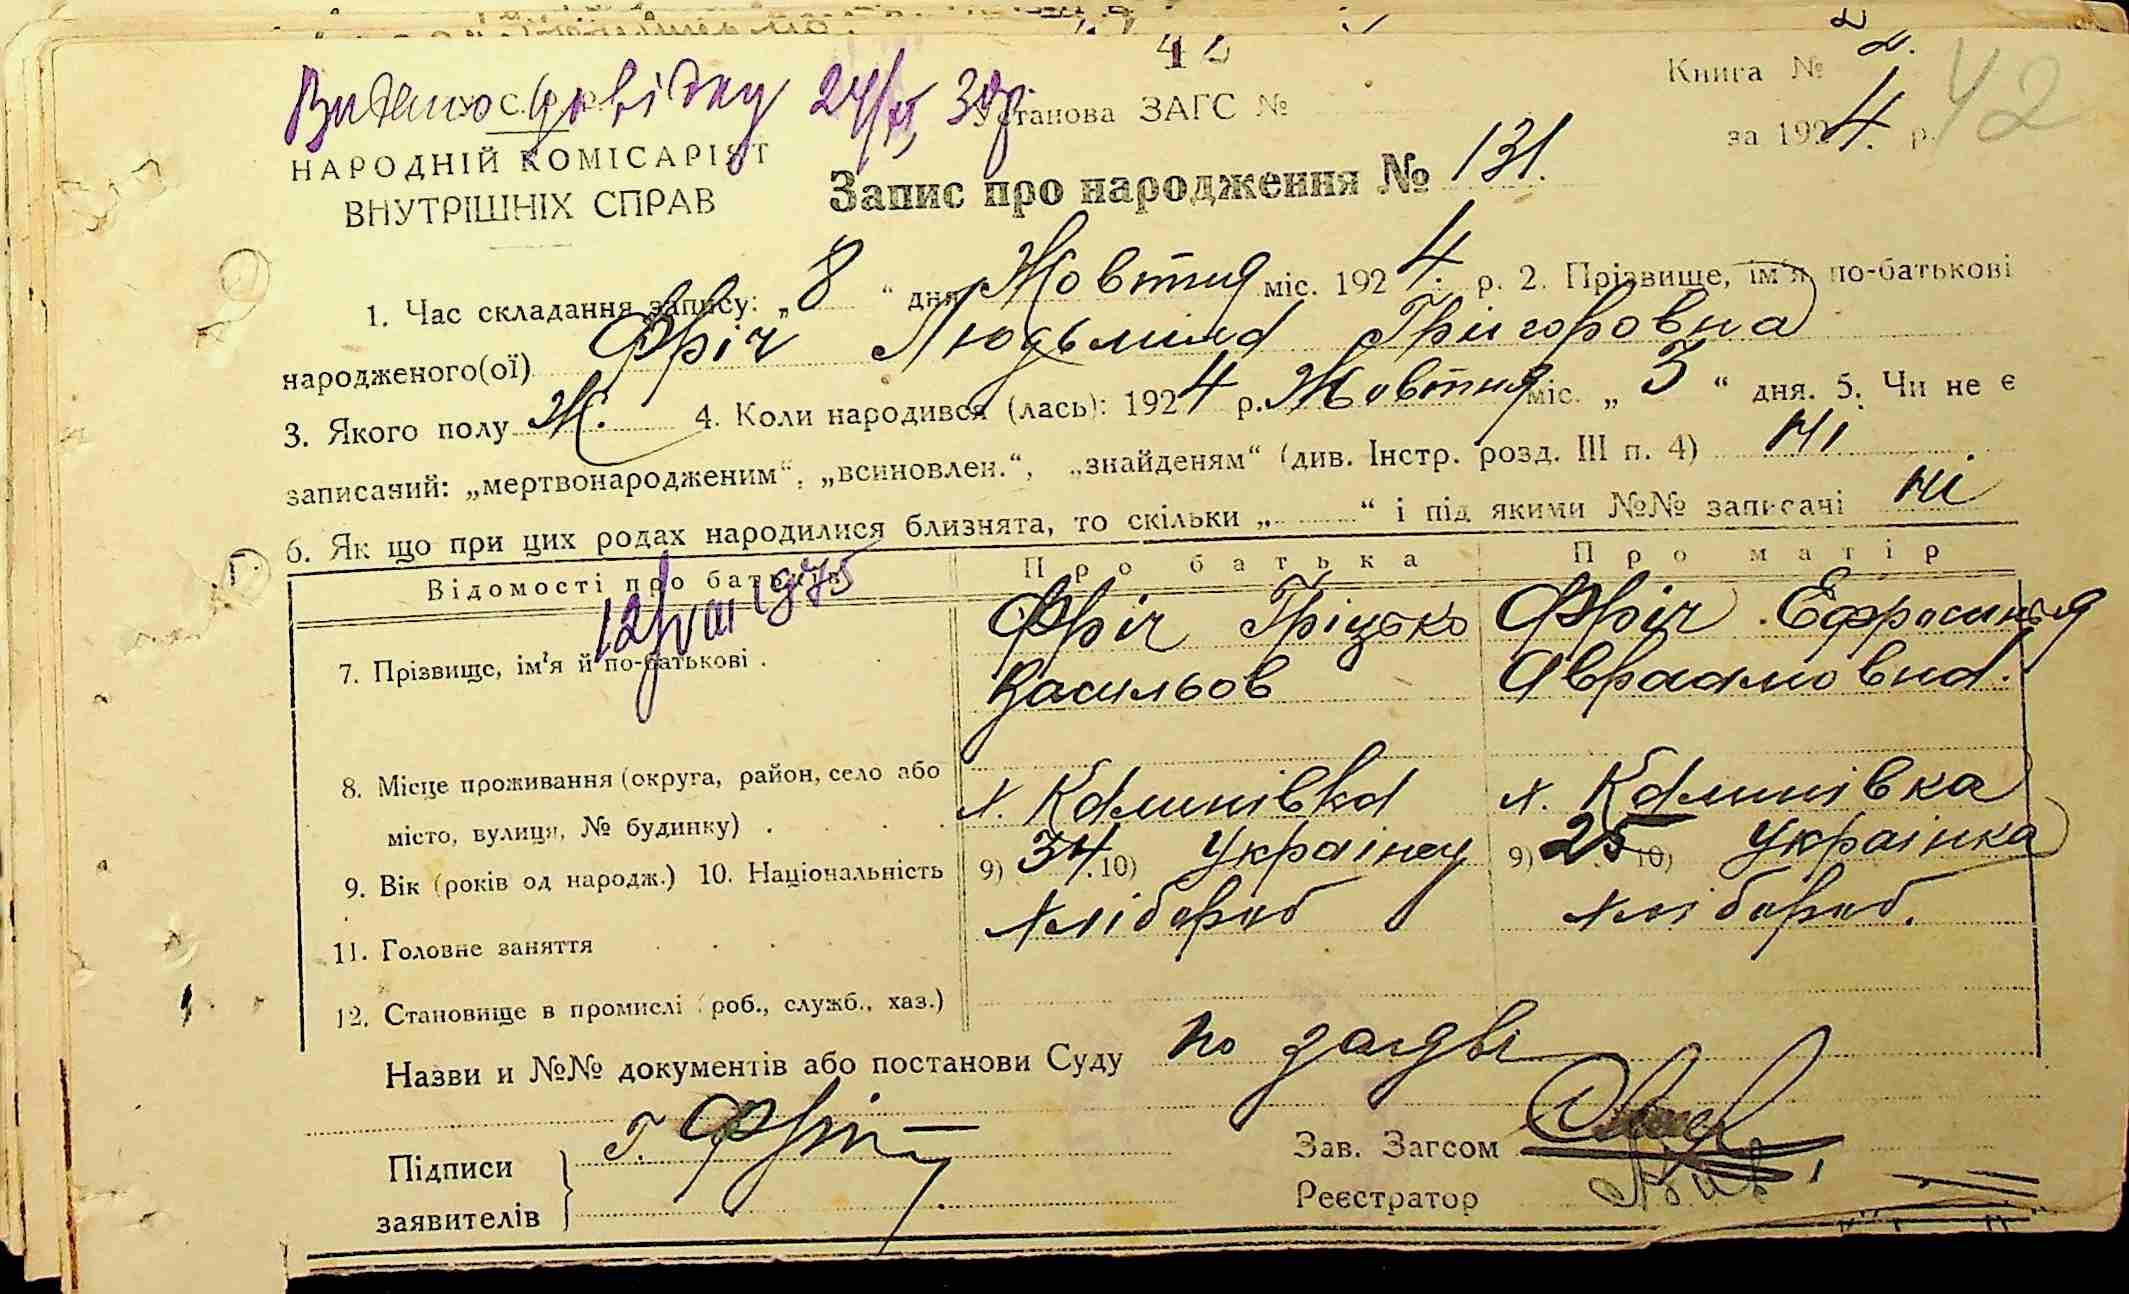 42
Книга №
Видано довідку 24/VI 39 р.
Установа ЗАГС №
42
за 1924. р.
НАРОДНІЙ КОМІСАРІЯТ
ВНУТРІШНІХ СПРАВ
Запис про народження № 131.
1. Час складання запису: „8“ дня Жовтня міс. 1924. р. 2. Прізвище, ім'я, по-батькові
народженого(ої) Фріч Людьміла Грігоровна
3. Якого полу Ж. 4. Коли народився (лась): 1924 р. Жовтня міс. „3“ дня. 5. Чи не є
записаний: „мертвонародженим“, „всиновлен.“, „знайденям“ (див. Інстр. розд. III п. 4) ні
6. Як що при цих родах народилися близнята, то скільки „ “ і під якими №№ записані ні
Відомості про батьків Про батька Про матір
12/VIII 1975
7. Прізвище, ім'я й по-батькові . Фріч Гріцько Фріч Ефросинья
Васильов Авраамовна.
8. Місце проживання (округа, район, село або х. Калинівка х. Калинівка
місто, вулиця, № будинку) .
9. Вік (років од народж.) 10. Національність 9) 34 10) Українец 9) 25 10) Українка
11. Головне заняття хлібороб хлібороб.
12. Становище в промислі (роб., служб., хаз.)
Назви и №№ документів або постанови Суду по
Підписи
заявителів
Г. Фріч
Зав. Загсом
Реєстратор